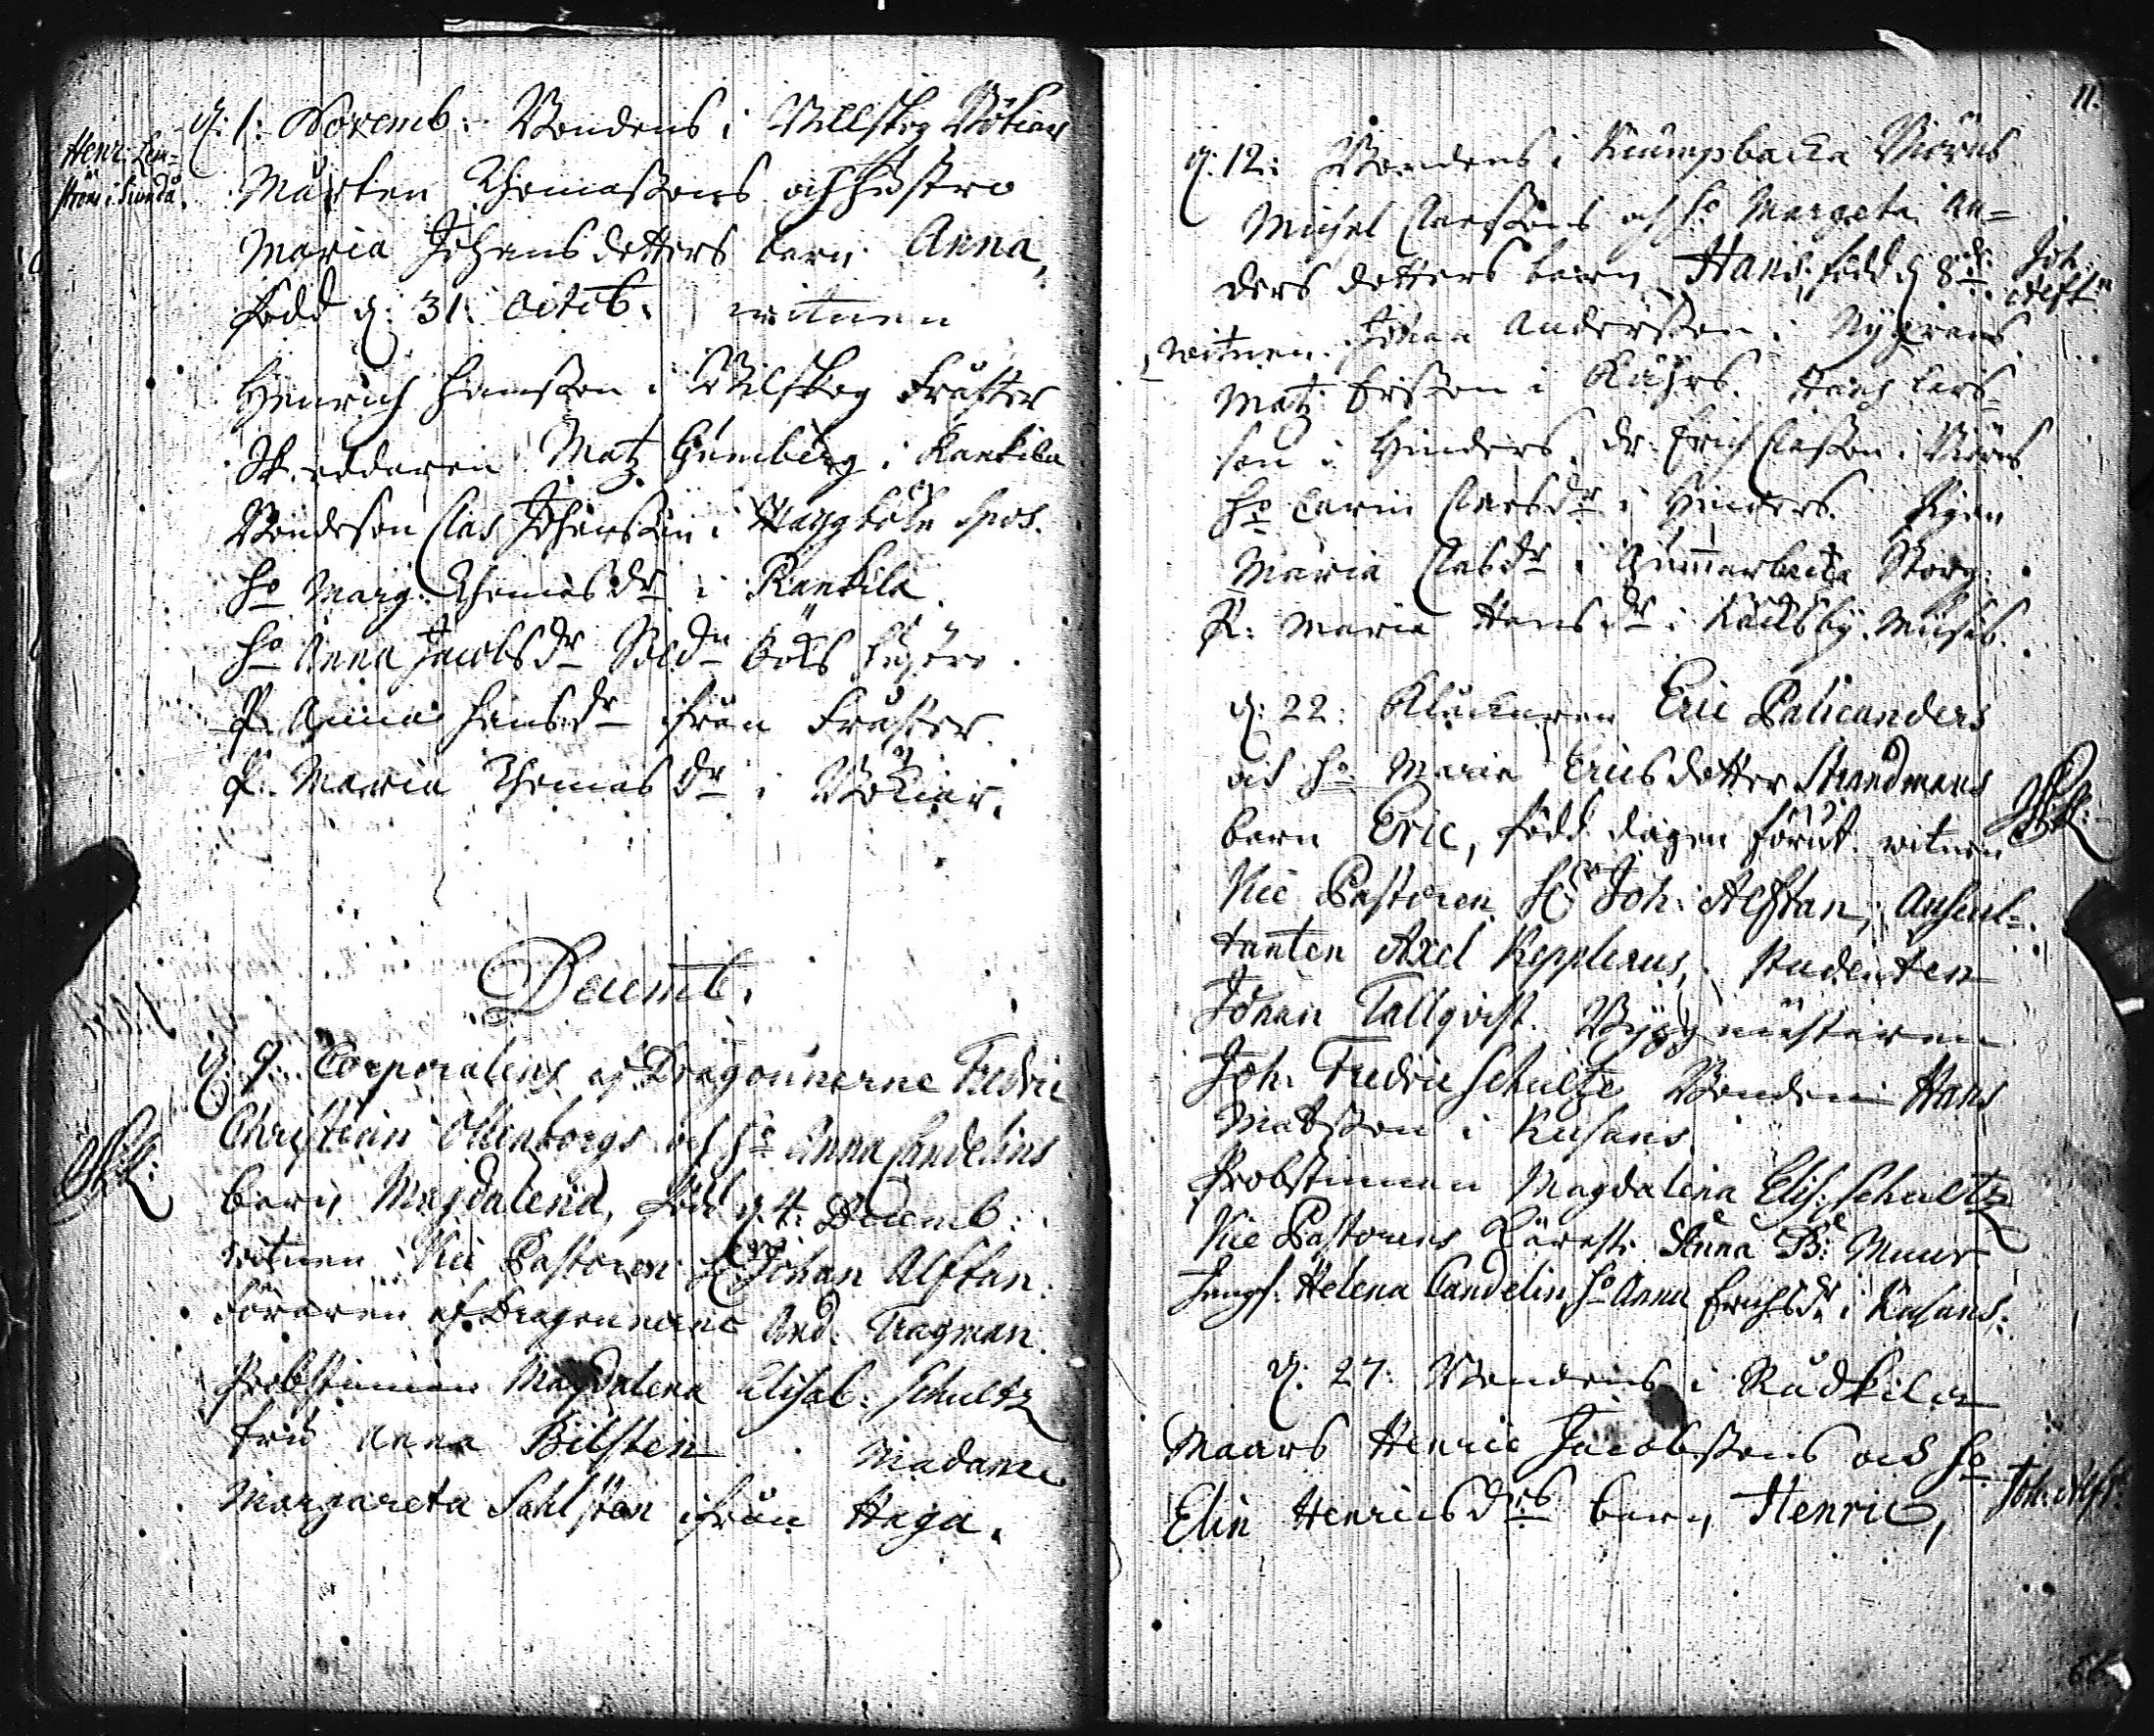 d. 1. Novemb: Bondens i Willskog Bökars
Henr: Lem=
ströms i Sundå.
Mårten Thomassons och hustro
Maria Johansdotters barn Anna,
född d: 31. Octob. witnen
Henrich Hansson i Willskog Fråster
Matz Grünberg i Rankila
Bondeson Clas Johansson i
ho Marg: Thomasdr i Rankila
ho Anna Jacobsdr Sold. Böks
P. Anna Hansdr ifrån Fråster
P. Maria Thomasdr i Bökar.
Decemb.
d. 9. Corporalens af Dragounerne Fredric
Christian Ollenborgs och ho Anna Candelins
barn Magdalena, född d. 4. Decemb:
witnen Vice Pastoren Hr Johan Alftan.
Föraren af Dragounerne And: Tragman.
Probstinnan Magdalena Elisab: Schultz
Fru Anna Bilsten Madame
Margareta Sahlsten ifrån Haga.
11.
d. 12: Bondens i Krumpbacka
Michel Clarssons och ho Margeta An=
ders dotters barn Hans, född d 8de
Joh.
Alftn
witnen. Johan Andersson i Nygrens
Matz Ersson i Kåhrs. Hans Lars=
son i Hinders, dr. Erich Classon i
ho Carin Clarsdr i Hinders. Pigan
Maria Clasdr i Gummarbacka
P: Maria Hansdr i Käcksby.
d: 22: Klåckaren Eric Palicanders
och ho Maria Ericsdotter Strandmans
barn Eric, född dagen förut. witnen
Vice Pastoren Hr Joh: Alftan, Auscul=
tanten Axel Kepplerus, Studenten
Johan Tallqvist. Byggmästaren
Joh. Fredric Schultz Bonden Hans
Matsson i Kusans.
Probstinnan Magdalena Elis: Schultz
Vice Pastorens Käresta Anna B: Muur.
Jungf: Helena Candelin, ho Anna Erichsdr i Kusans.
d: 27: Bondens i Rudkila
Maars Henric Jacobssons och ho
Elin Henricsdrs barn Henric,
Joh: Alft: